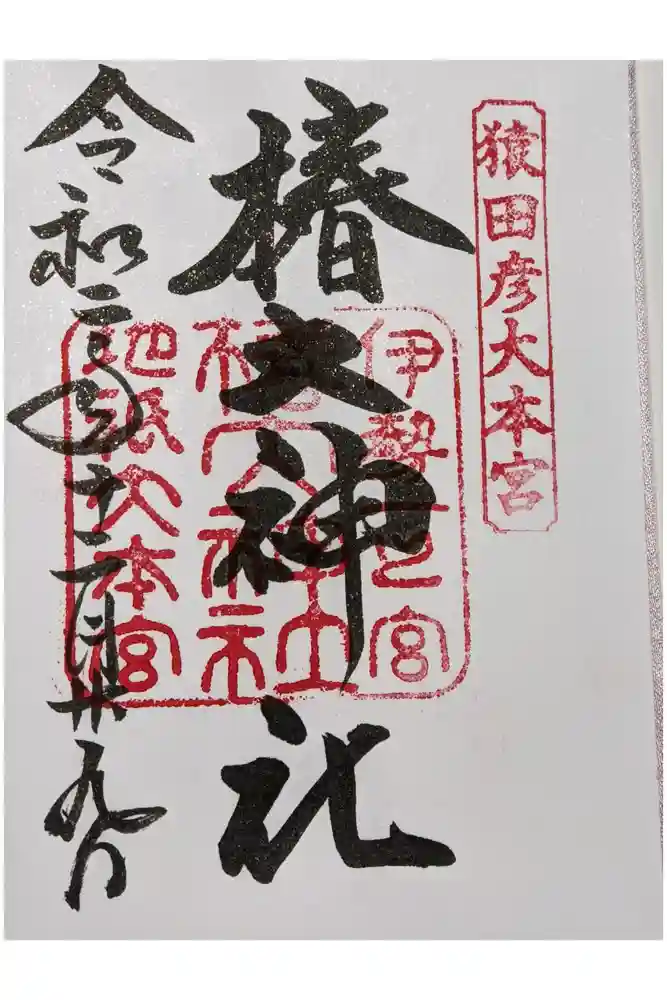 猿田彦大本宮
椿大神社
伊勢一宮
椿大神社
地祇大本宮
令和二年十一月廿九日